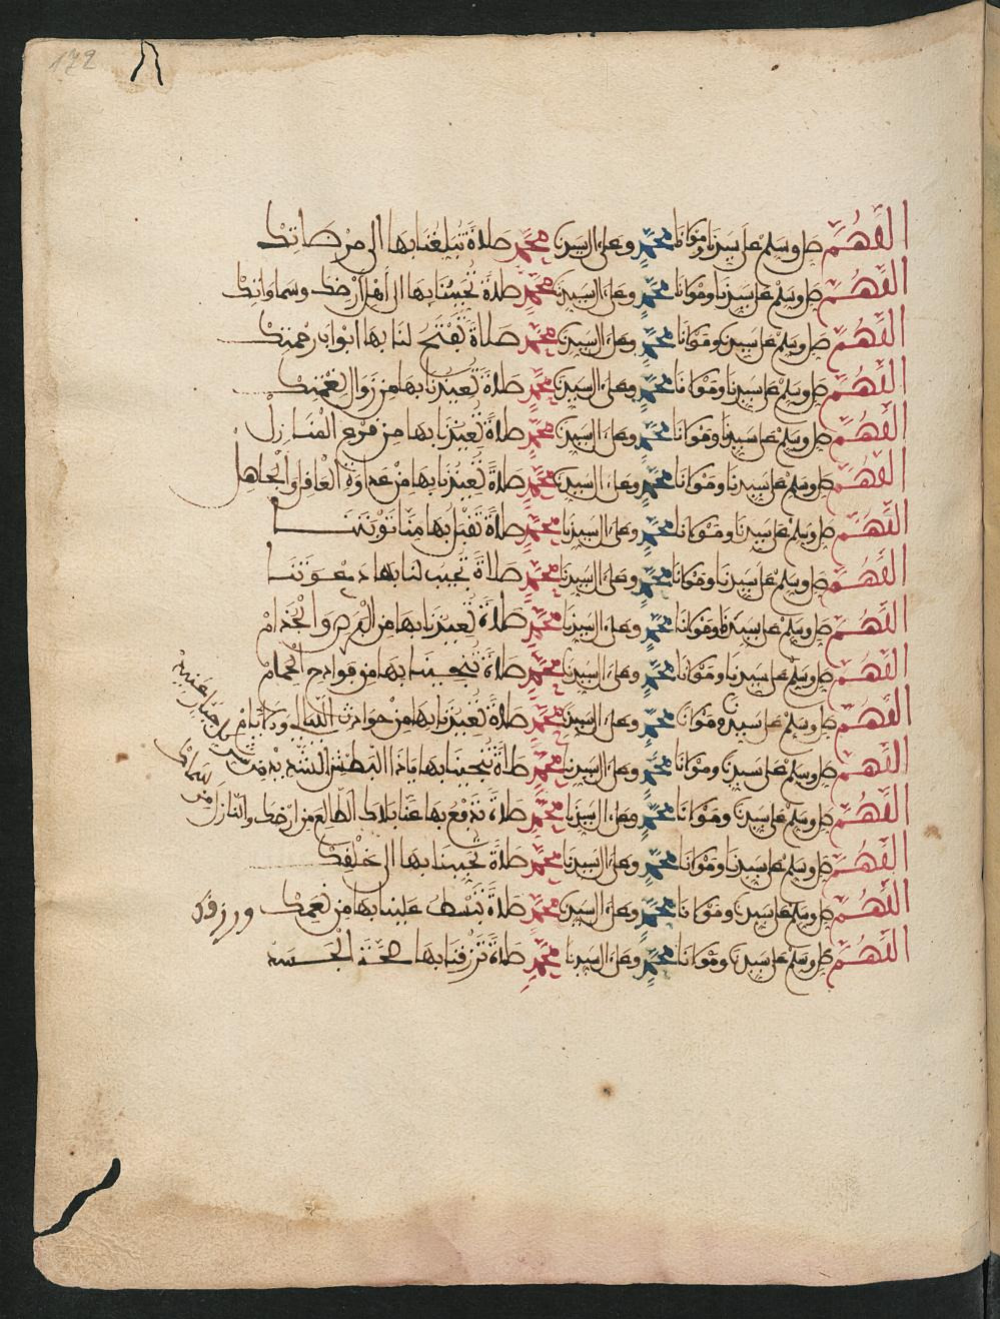 172
اللهم صل وسلم على سيدنا ومولانا محمد وعلى ءال سيدنا محمد صلاة تبلغنا بها الى مرضاتك
اللهم صل وسلم على سيدنا ومولانا محمد وعلى ءال سيدنا محمد صلاة تحببنا بها الى أهل أرضك وسماواتك
اللهم صل وسلم على سيدنا ومولانا محمد وعلى ءال سيدنا محمد صلاة تفتح لنا بها ابواب رحمتك
اللهم صل وسلم على سيدنا ومولانا محمد وعلى ءال سيدنا محمد صلاة تعيذنا بها من زوال نعمتك
اللهم صل وسلم على سيدنا ومولانا محمد وعلى ءال سيدنا محمد صلاة تعيذنا بها من المنازل
اللهم صل وسلم على سيدنا ومولانا محمد وعلى ءال سيدنا محمد صلاة تعيذنا بها من عداوة العاقل والجاهل
اللهم صل وسلم على سيدنا ومولانا محمد وعلى ءال سيدنا محمد صلاة تقبل بها منا توبتنا
اللهم صل وسلم على سيدنا ومولانا محمد وعلى ءال سيدنا محمد صلاة تجيب لنا بها دعوتنا
اللهم صل وسلم على سيدنا ومولانا محمد وعلى ءال سيدنا محمد صلاة تعيذنا بها من البرص والجذام
اللهم صل وسلم على سيدنا ومولانا محمد وعلى ءال سيدنا محمد صلاة تنجينا بها من
اللهم صل وسلم على سيدنا ومولانا محمد وعلى ءال سيدنا محمد صلاة تعيذنا بها من حوادث
اللهم صل وسلم على سيدنا ومولانا محمد وعلى ءال سيدنا محمد صلاة تنجينا بها ياذا البطش الشديد من شر كل جبار عنيد
اللهم صل وسلم على سيدنا ومولانا محمد وعلى ءال سيدنا محمد صلاة تدفع بها عنا بلاءك الطالع من ارضك والنازل من سمائك
اللهم صل وسلم على سيدنا ومولانا محمد وعلى ءال سيدنا محمد صلاة تحببنا بها الى خلقك
اللهم صل وسلم على سيدنا ومولانا محمد وعلى ءال سيدنا محمد صلاة تبسط علينا بها من نعمك ورزقك
اللهم صل وسلم على سيدنا ومولانا محمد وعلى ءال سيدنا محمد صلاة ترزقنا بها صحة الجسد